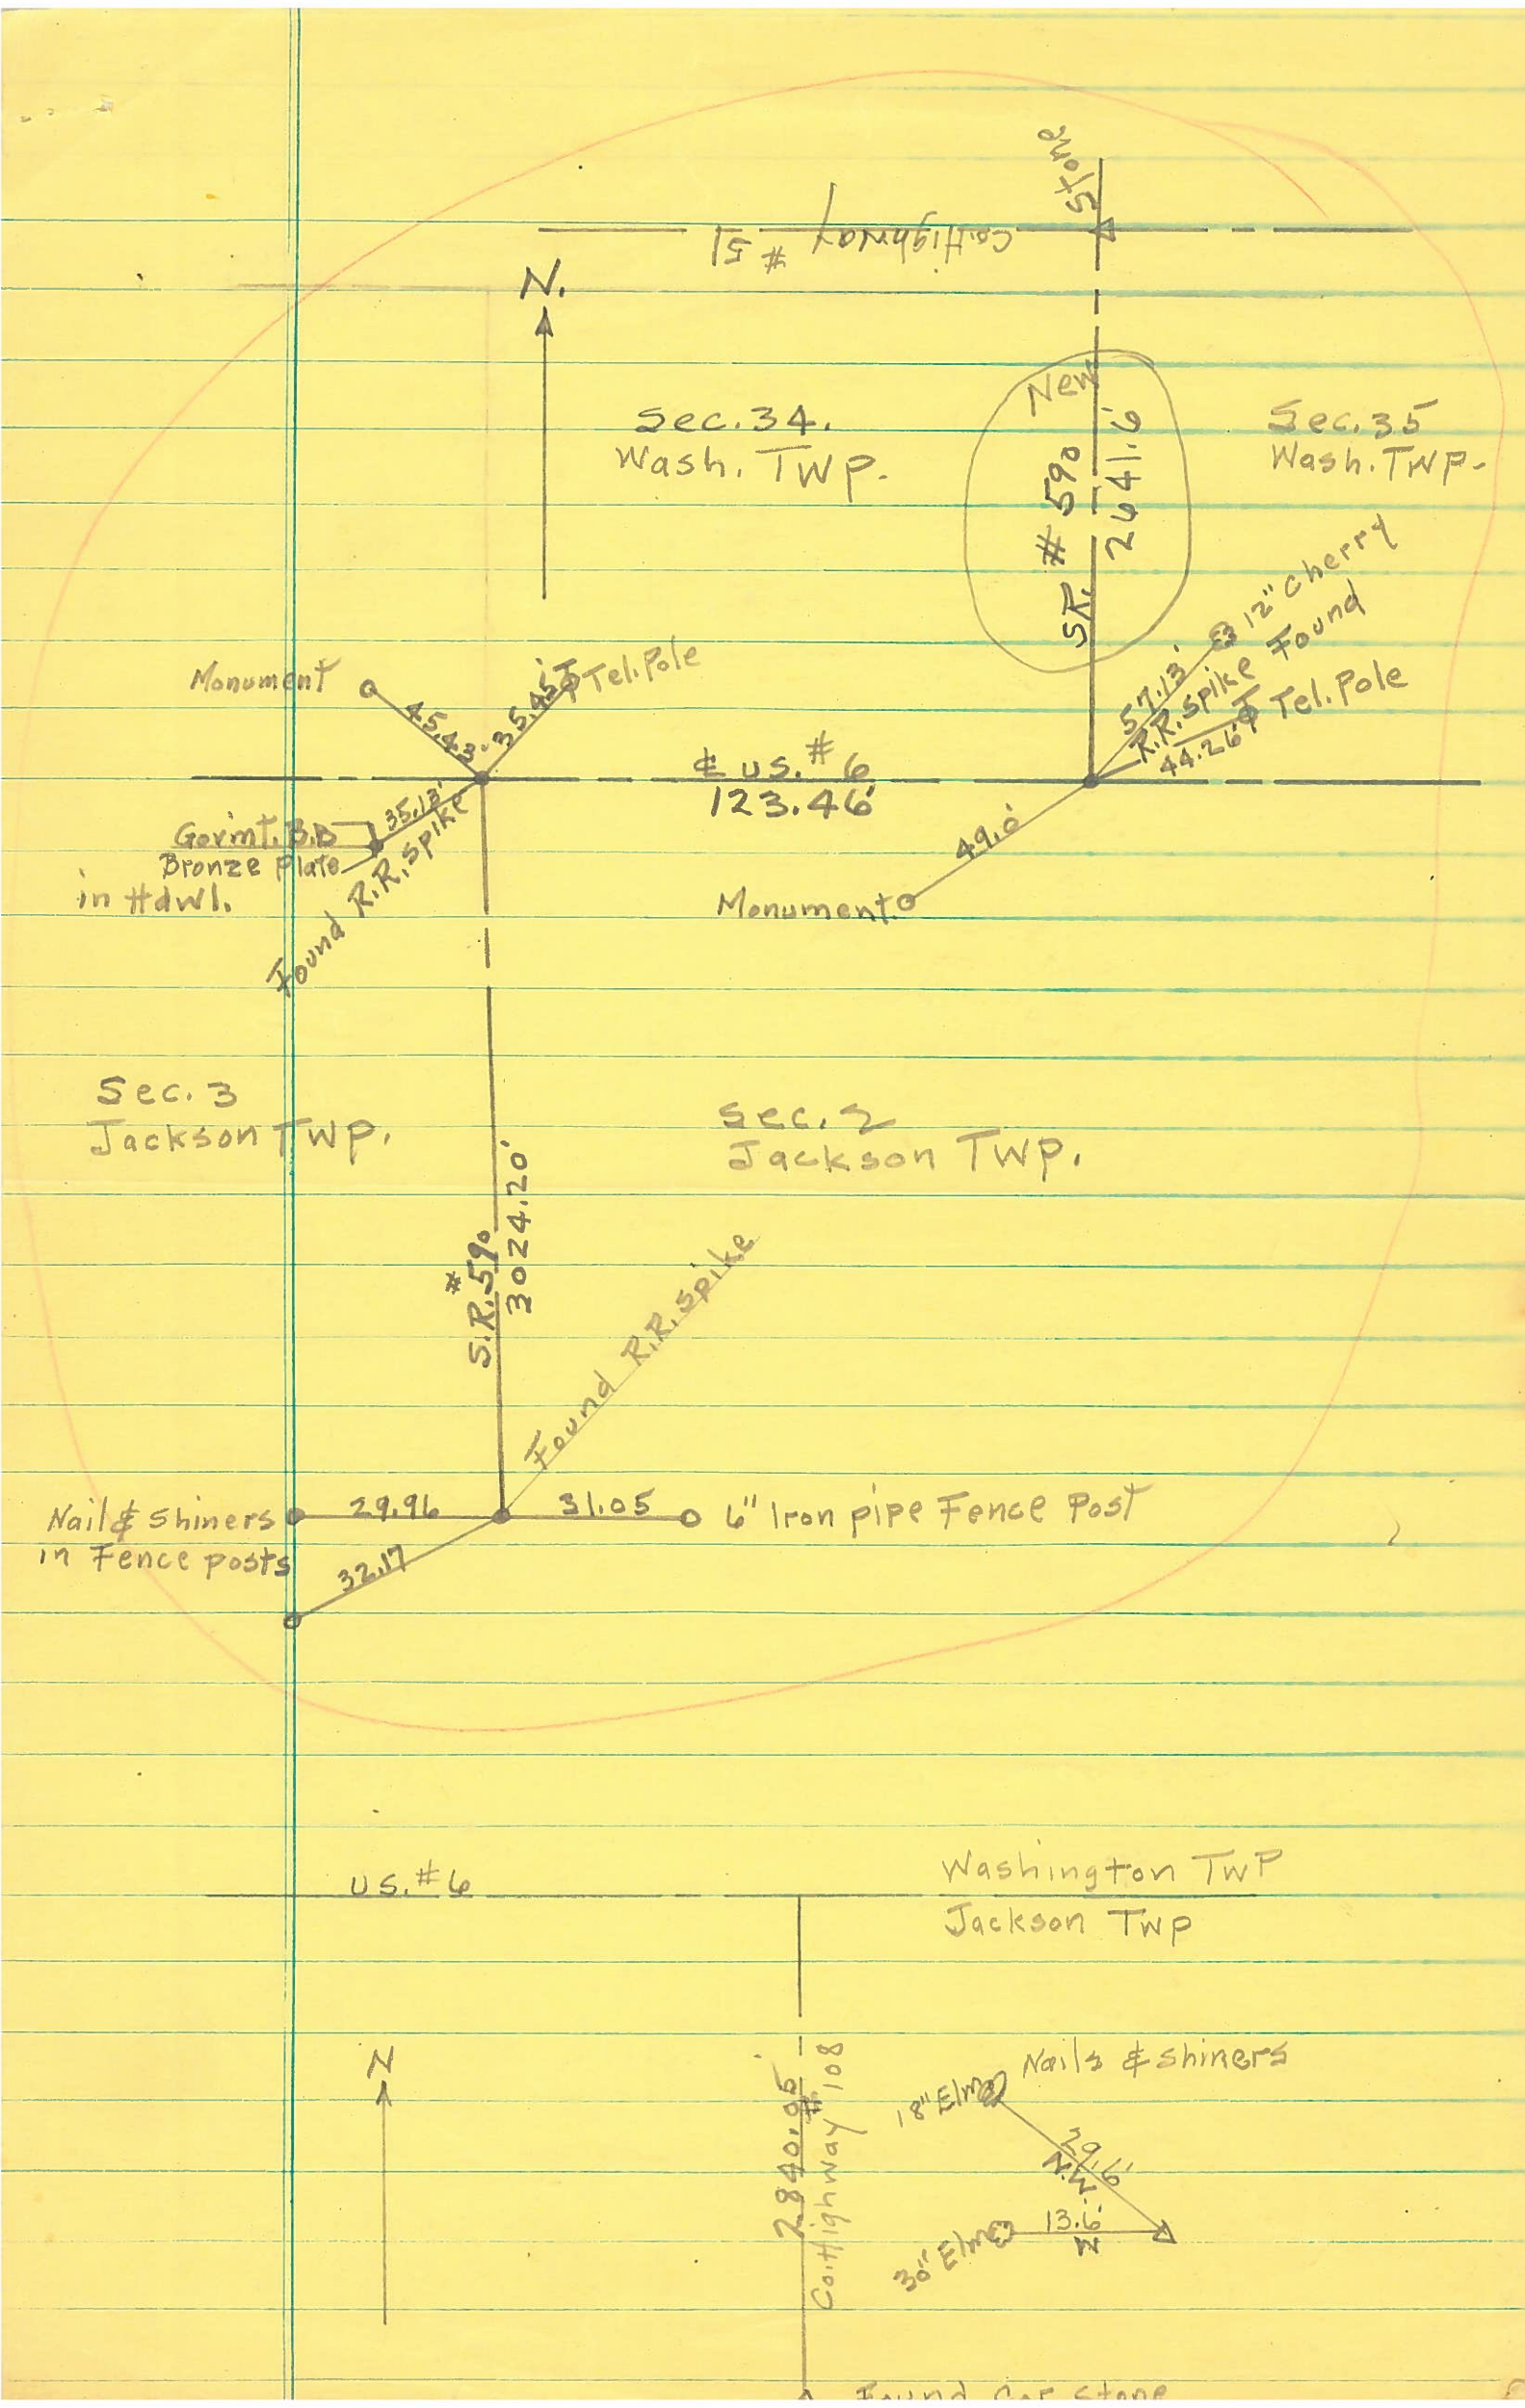 Stone
Co.Highway #51
N.
New
Sec.34.
Wash. TWP.
Sec.35
Wash.TWP.
S.R. #590
2641.6'
12" cherry
57.13'
R.R. spike Found
Tel. Pole
44.26'
Monument
45.43'
35.45'
Tel. Pole
₵ U.S. #6
123.46'
35.13'
Gov'mt. B.
Bronze Plate
in Hdwl.
Found R.R. spike
49.0'
Monument
Sec. 3
Jackson TWP.
Sec. 2
Jackson TWP.
S.R. #590
3024.20'
Found R.R. spike
Nail & Shiners
in Fence posts
29.96
31.05
6" Iron pipe Fence Post
32.17
U.S. #6
Washington TWP
Jackson TWP
N
2840.05
Co.Highway #108
Nails & Shiners
18" Elm
29.6'
N.W.
30" Elm
13.6'
Found Cor Stone